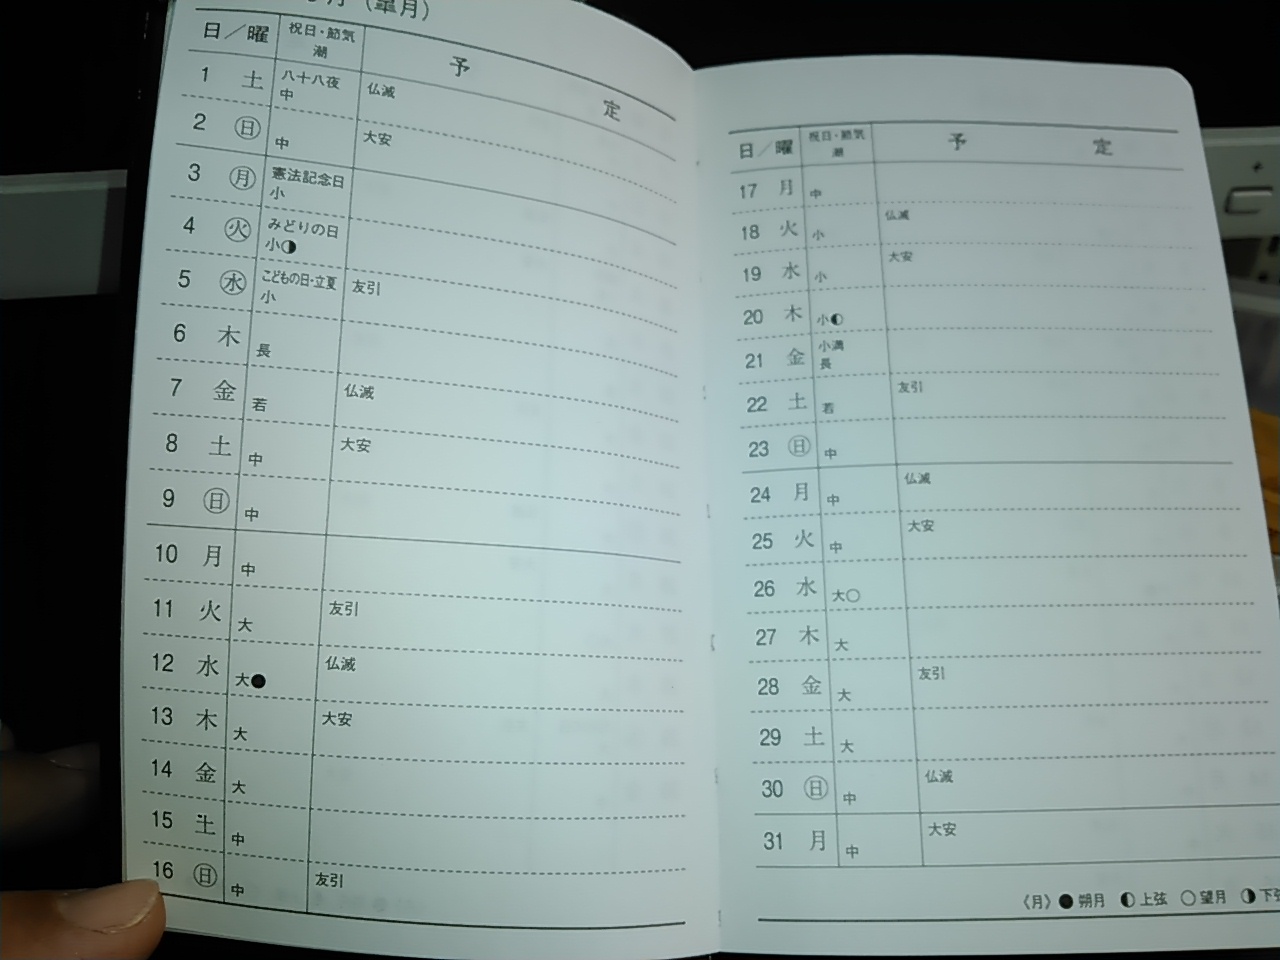 月（皐月）
日／曜 祝日・節気 潮 予 定
1 土 八十八夜 中 仏滅
2 ㊐ 中 大安
3 ㊊ 憲法記念日 小
4 ㊋ みどりの日 小◑
5 ㊌ こどもの日・立夏 小 友引
6 木 長
7 金 若 仏滅
8 土 中 大安
9 ㊐ 中
10 月 中
11 火 大 友引
12 水 大● 仏滅
13 木 大 大安
14 金 大
15 土 中
16 ㊐ 中 友引
日／曜 祝日・節気 潮 予 定
17 月 中
18 火 小 仏滅
19 水 小 大安
20 木 小◐
21 金 小満 長
22 土 若 友引
23 ㊐ 中
24 月 中 仏滅
25 火 中 大安
26 水 大○
27 木 大
28 金 大 友引
29 土 大
30 ㊐ 中 仏滅
31 月 中 大安
《月》●朔月 ◐上弦 ○望月 ◑下弦